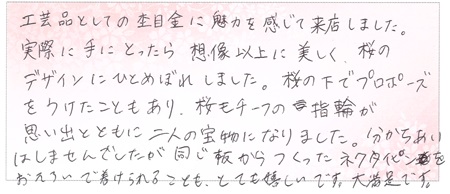 工芸品としての杢目金に魅力を感じて来店しました。
実際に手にとったら想像以上に美しく、桜の
デザインにひとめぼれしました。桜の下でプロポーズ
をうけたこともあり、桜モチーフの指輪が
思い出とともに二人の宝物になりました。分かちあい
はしませんでしたが同じ板からつくったネクタイピンを
おそろいで着けられることも、とても嬉しいです。大満足です。